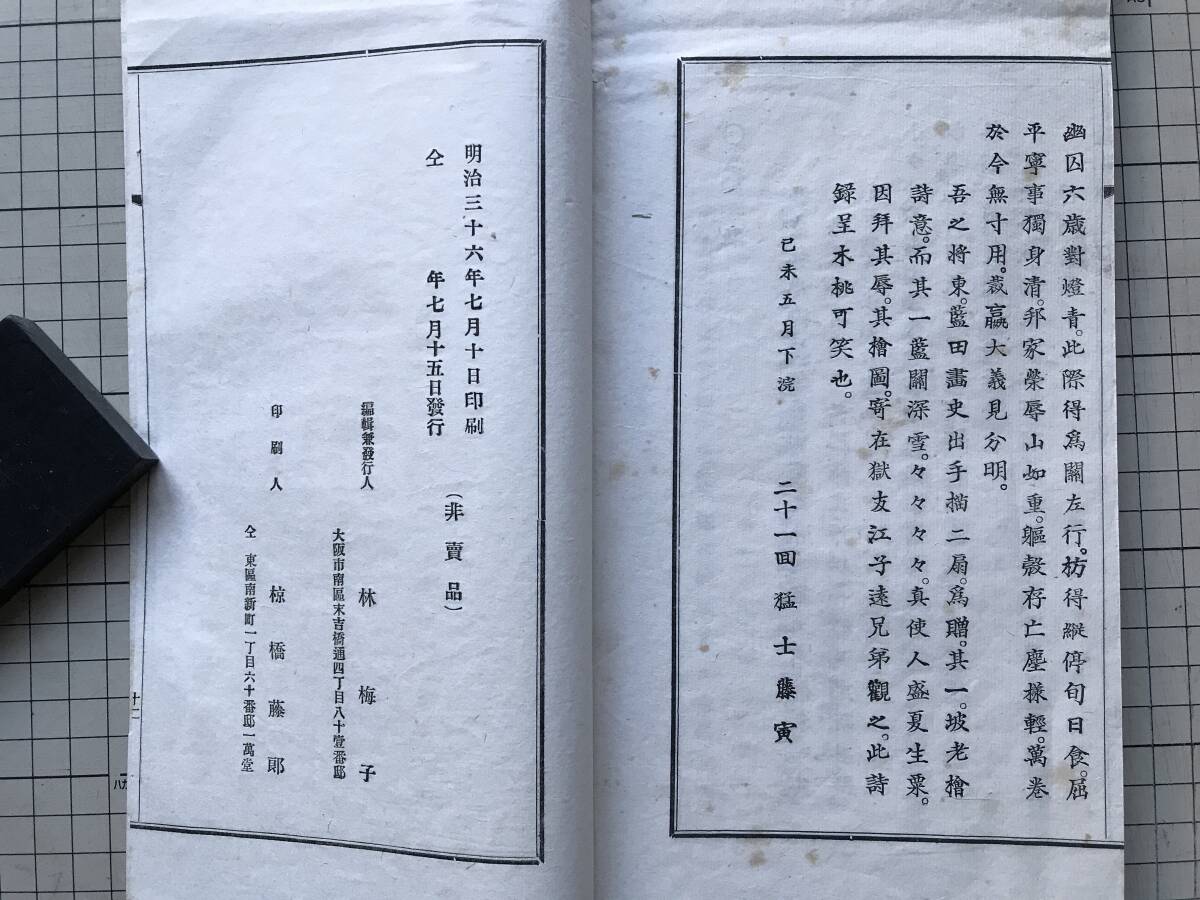 幽囚六歳對燈青。此際得爲關左行。枋得縦停旬日食。屈
平寧事獨身清。邦家榮辱山如重。軀殻存亡塵様輕。萬卷
於今無寸用。裁嬴大義見分明。
吾之将東。藍田畫史出手描二扇。爲贈。其一。坡老檜
詩意。而其一藍關深雪。々々々々。真使人盛夏生粟。
因拜其辱。其檜圖。寄在獄友江子遠兄弟觀之。此詩
録呈木桃可笑也。
己未五月下浣　二十一回猛士藤寅
明治三十六年七月十日印刷
仝　年七月十五日發行
（非賣品）
編輯兼發行人　林梅子
大阪市南區末吉橋通四丁目八十壹番邸
印刷人　椋橋藤郎
仝東區南新町一丁目六十番邸一萬堂
十二